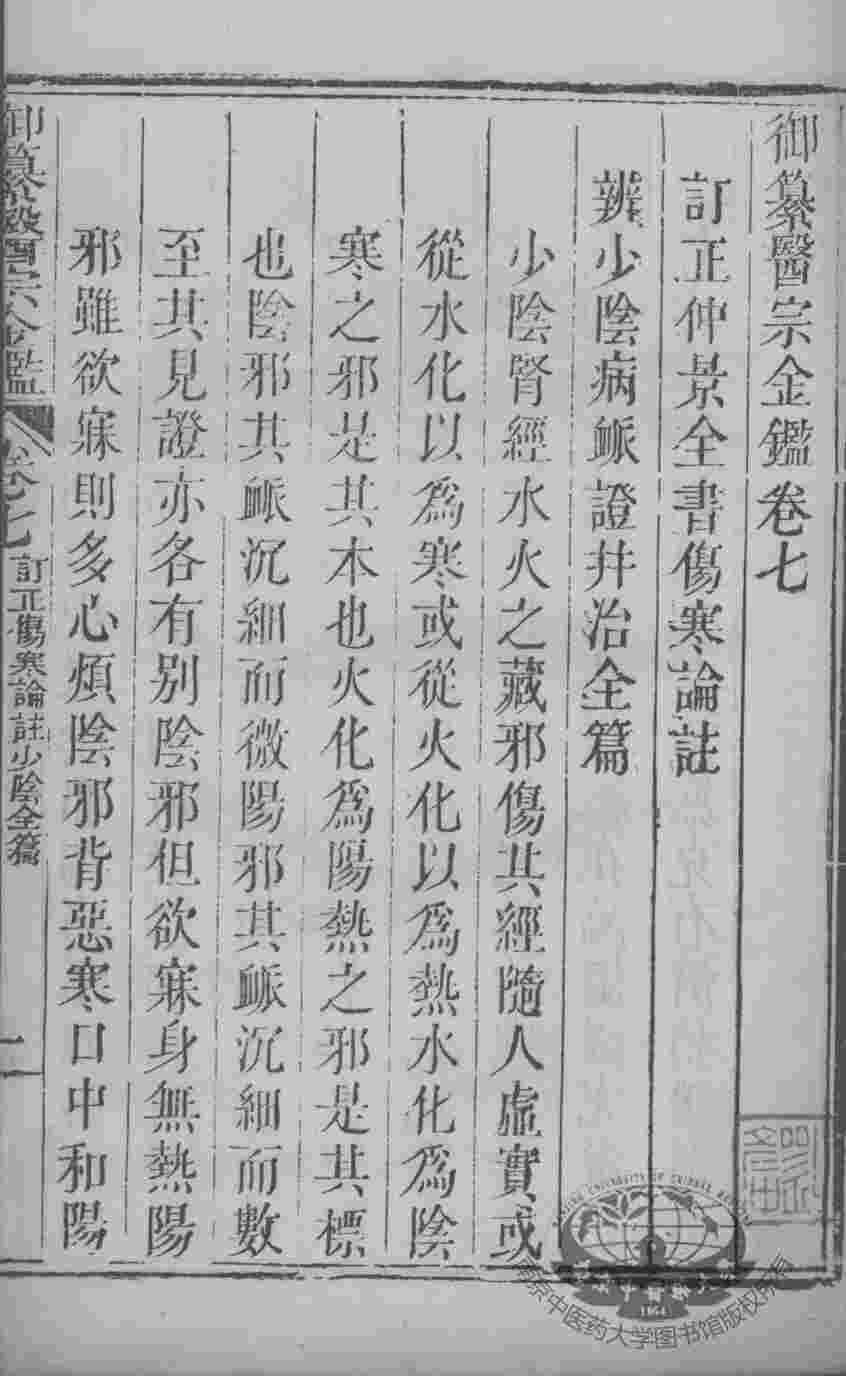 御纂醫宗金鑑卷七
訂正仲景全書傷寒論註
辨少陰病脈證并治全篇
少陰腎經水火之藏邪傷其經隨人虛實或
從水化以爲寒或從火化以爲熱水化爲陰
寒之邪是其本也火化爲陽熱之邪是其標
也陰邪其脈沉細而微陽邪其脈沉細而數
至其見證亦各有別陰邪但欲寐身無熱陽
邪雖欲寐則多心煩陰邪背惡寒口中和陽
御纂醫宗金鑑 卷七 訂正傷寒論註少陰全篇 一
南京中医药大学图书馆版权所有